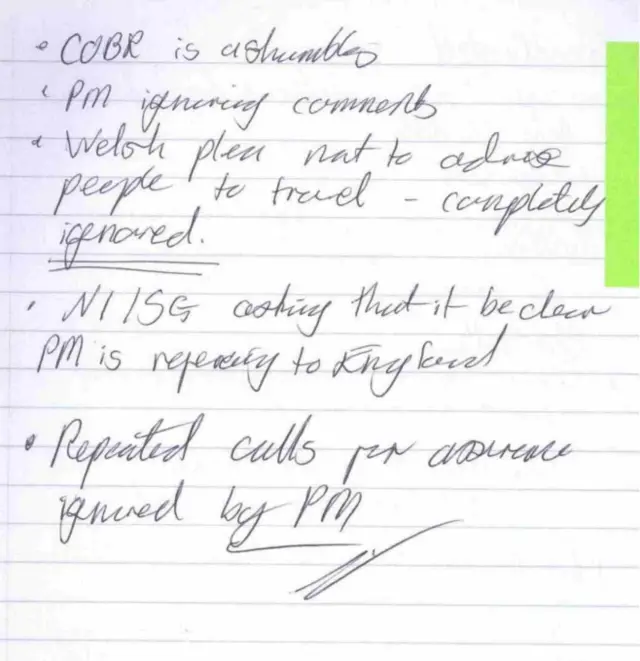 • COBR is a shambles
• PM ignoring comments
• Welsh plea not to advise
people to travel - completely
ignored.
• NI/SG asking that it be clear
PM is referring to England
• Repeated calls for assurance
ignored by PM